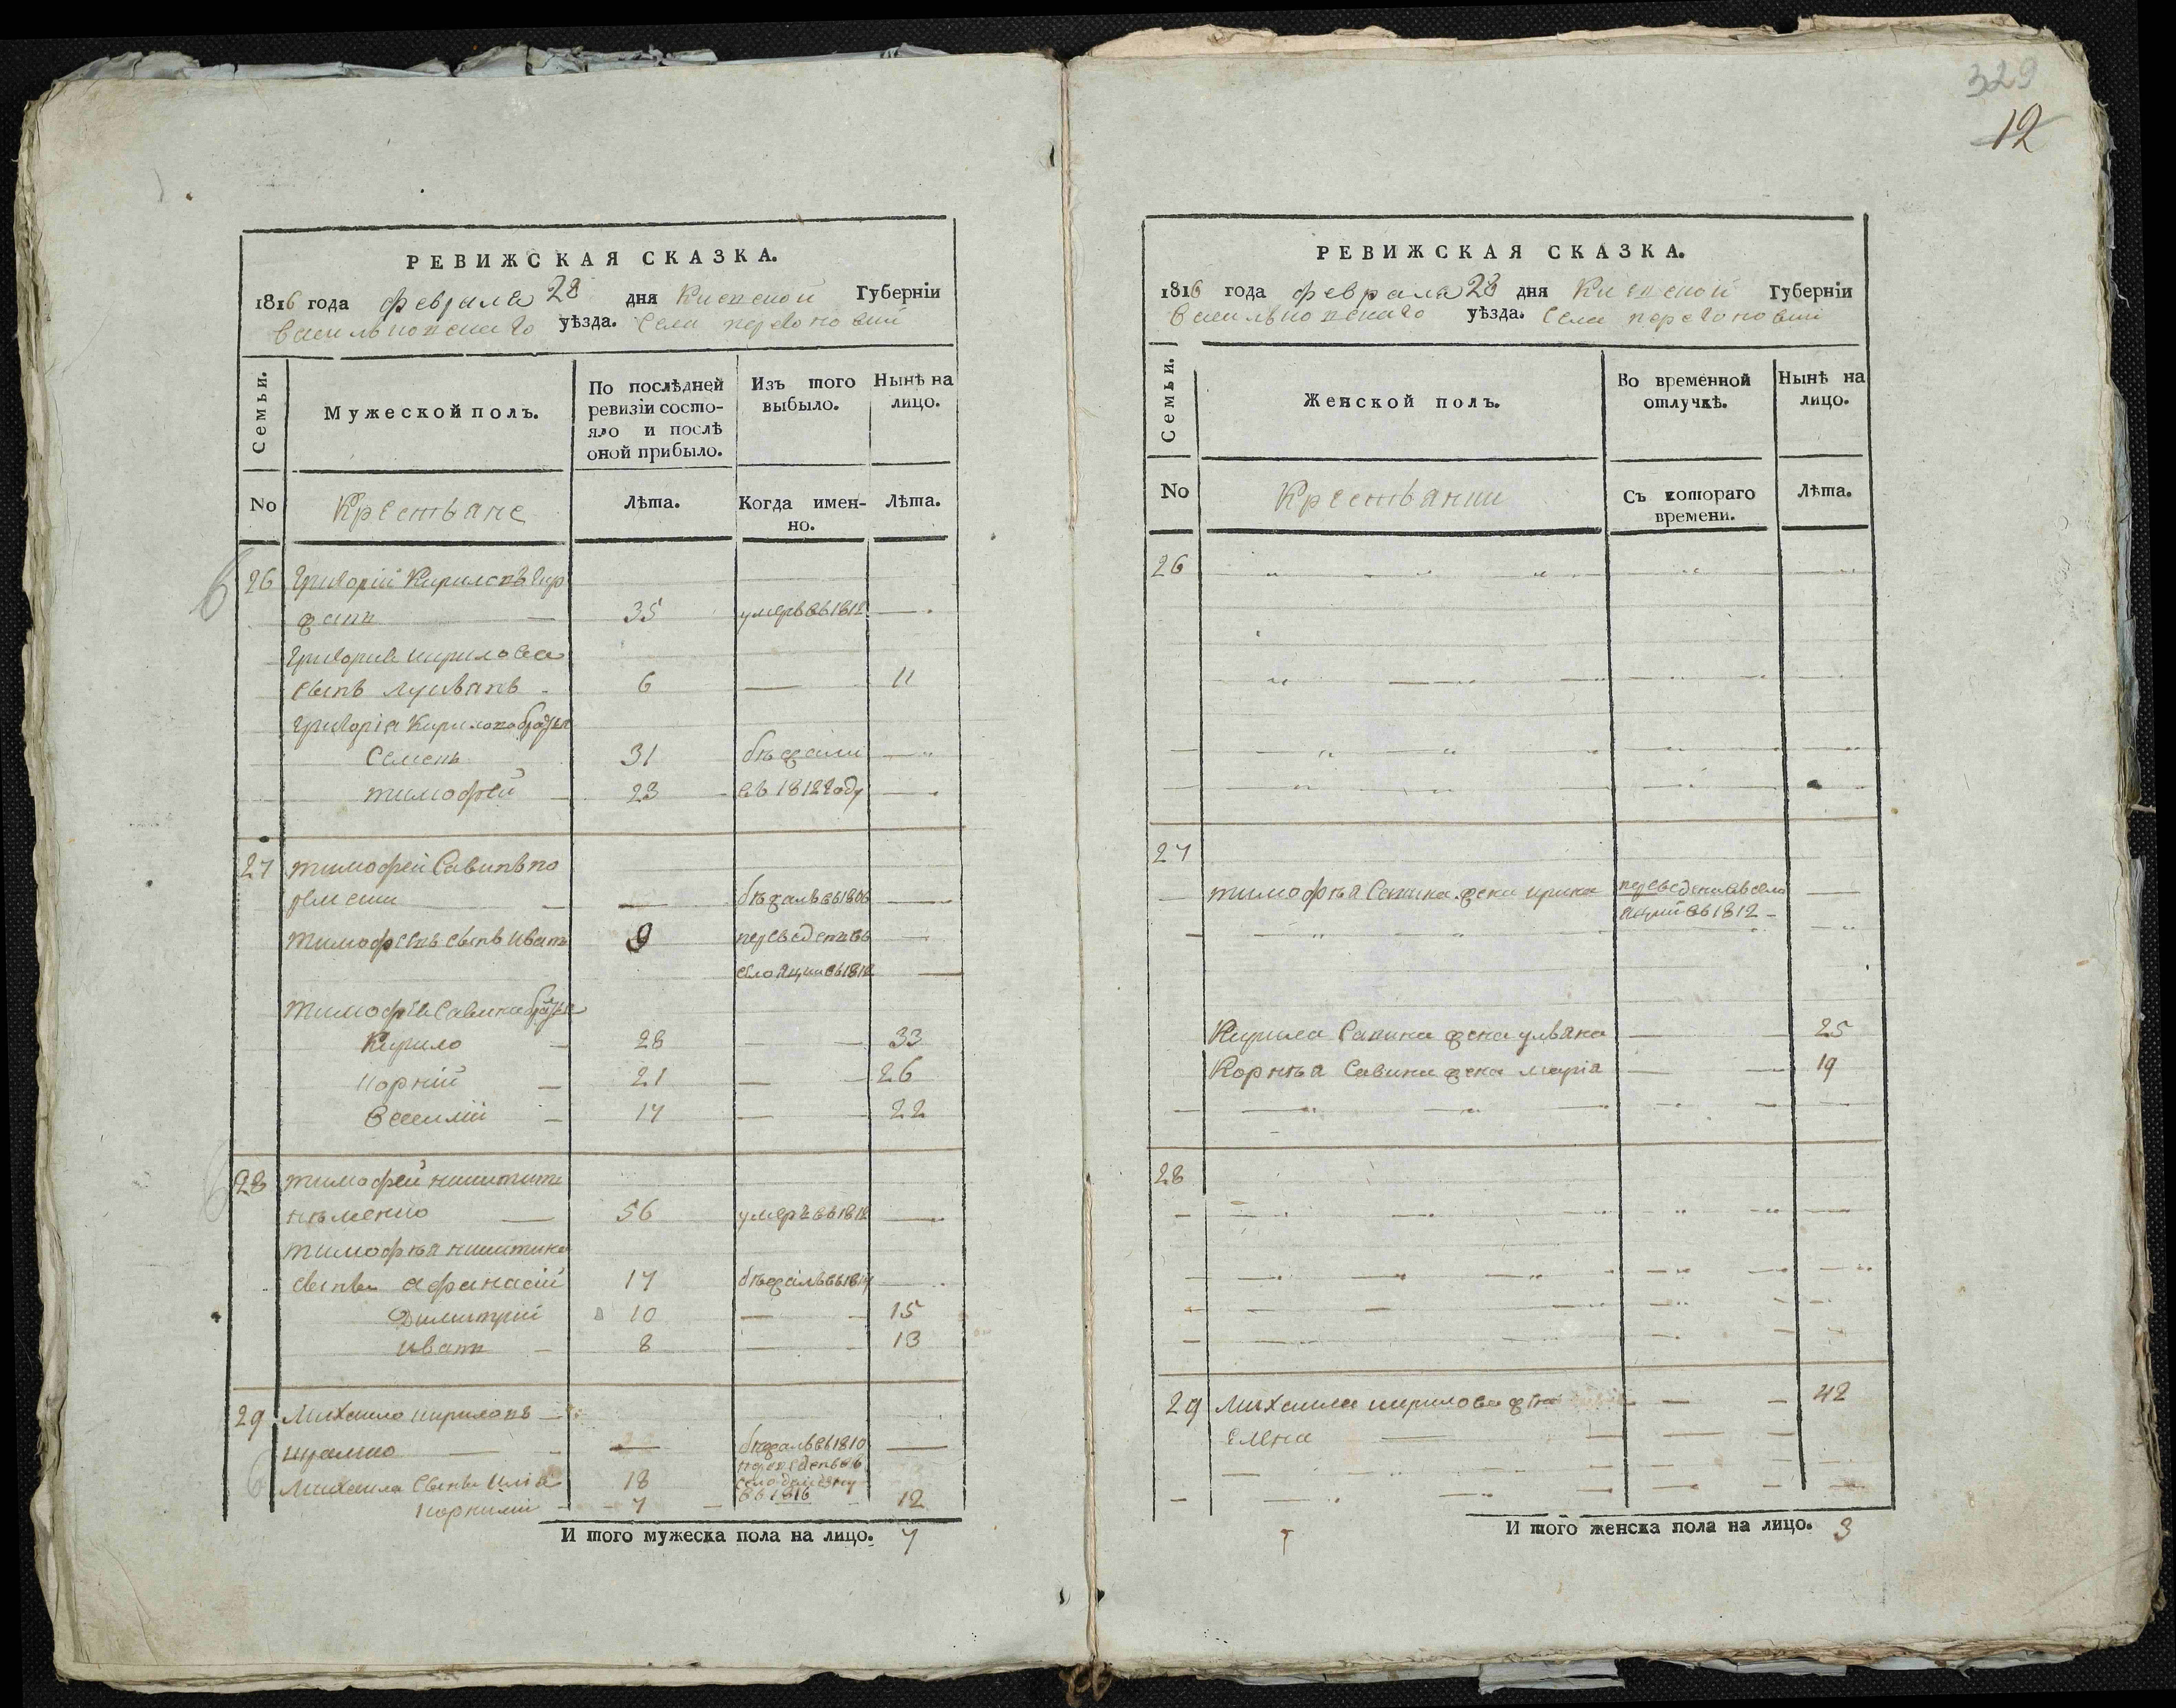 РЕВИЖСКАЯ СКАЗКА.
1816 года февраля 28 дня Киевской Губернїи
Васильковскаго уѣзда. Села
Семьи.
Мужеской полъ.
По послѣдней ревизїи состояло и послѣ оной прибыло.
Изъ того выбыло.
Нынѣ на лицо.
No
Крестьяне
Лѣта.
Когда именно.
Лѣта.
26 Григорий Кириловъ
35 умеръ въ 1812 —
Григория Кирилова
сынъ Лукьянъ 6 — 11
Григорїя Кирилова братья
Семенъ 31 бѣжали —
Тимофей 23 въ 1812 году —
27 Тимофей Савинъ
— бѣжалъ въ 1806 —
Тимофеевъ сынъ Иванъ 9 переведенъ въ —
село въ 1812 —
Тимофѣя Савина братья
Кирило 28 — 33
Корнїй 21 — 26
Василїй 17 — 22
28 Тимофей Никитинъ
56 умеръ въ 1812 —
Тимофѣя Никитина
сыновья Афанасїй 17 бѣжалъ въ
Димитрїй 10 — 15
Иванъ 8 — 13
29 Михайло Кириловъ
— бѣжалъ въ 1810 —
Михаила сыновья Илїя 18 переведенъ въ село
въ 1816
7 — 12
И того мужеска пола на лицо. 7
329
12
РЕВИЖСКАЯ СКАЗКА.
1816 года февраля 28 дня Киевской Губернїи
Васильковскаго уѣзда. Села
Семьи.
Женской полъ.
Во временной отлучкѣ.
Нынѣ на лицо.
No
Крестьянки
Съ котораго времени.
Лѣта.
26
27
Тимофѣя Савина жена Ирина переведена въ село —
въ 1812
Кирила Савина жена Ульяна — 25
Корнѣя Савина жена Марїя — 19
28
29 Михаила Кирилова жена — 42
Елена
И того женска пола на лицо. 3